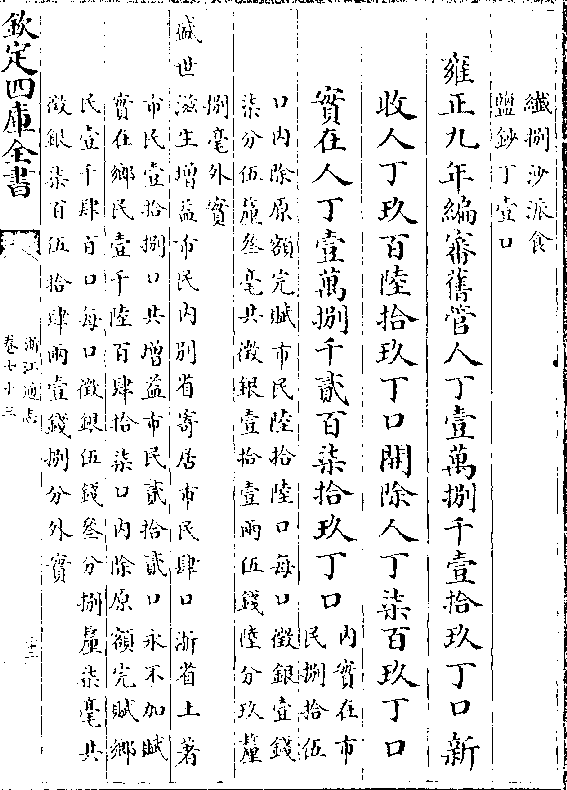 纖捌沙派食
鹽鈔丁壹口
雍正九年編審舊管人丁壹萬捌千壹拾玖丁口新
收人丁玖百陸拾玖丁口開除人丁柒百玖丁口
實在人丁壹萬捌千貳百柒拾玖丁口
內實在市
民捌拾伍
口內除原額完賦市民陸拾陸口每口徵銀壹錢
柒分伍釐叁毫共徵銀壹拾壹兩伍錢陸分玖釐
捌毫外實
盛世滋生增益市民內別省寄居市民肆口浙省土著
市民壹拾捌口共增益市民貳拾貳口永不加賦
實在鄉民壹千陸百肆拾柒口內除原額完賦鄉
民壹千肆百口每口徵銀伍錢叁分捌釐柒毫共
徵銀柒百伍拾肆兩壹錢捌分外實
欽定四庫全書
浙江通志
卷七十三